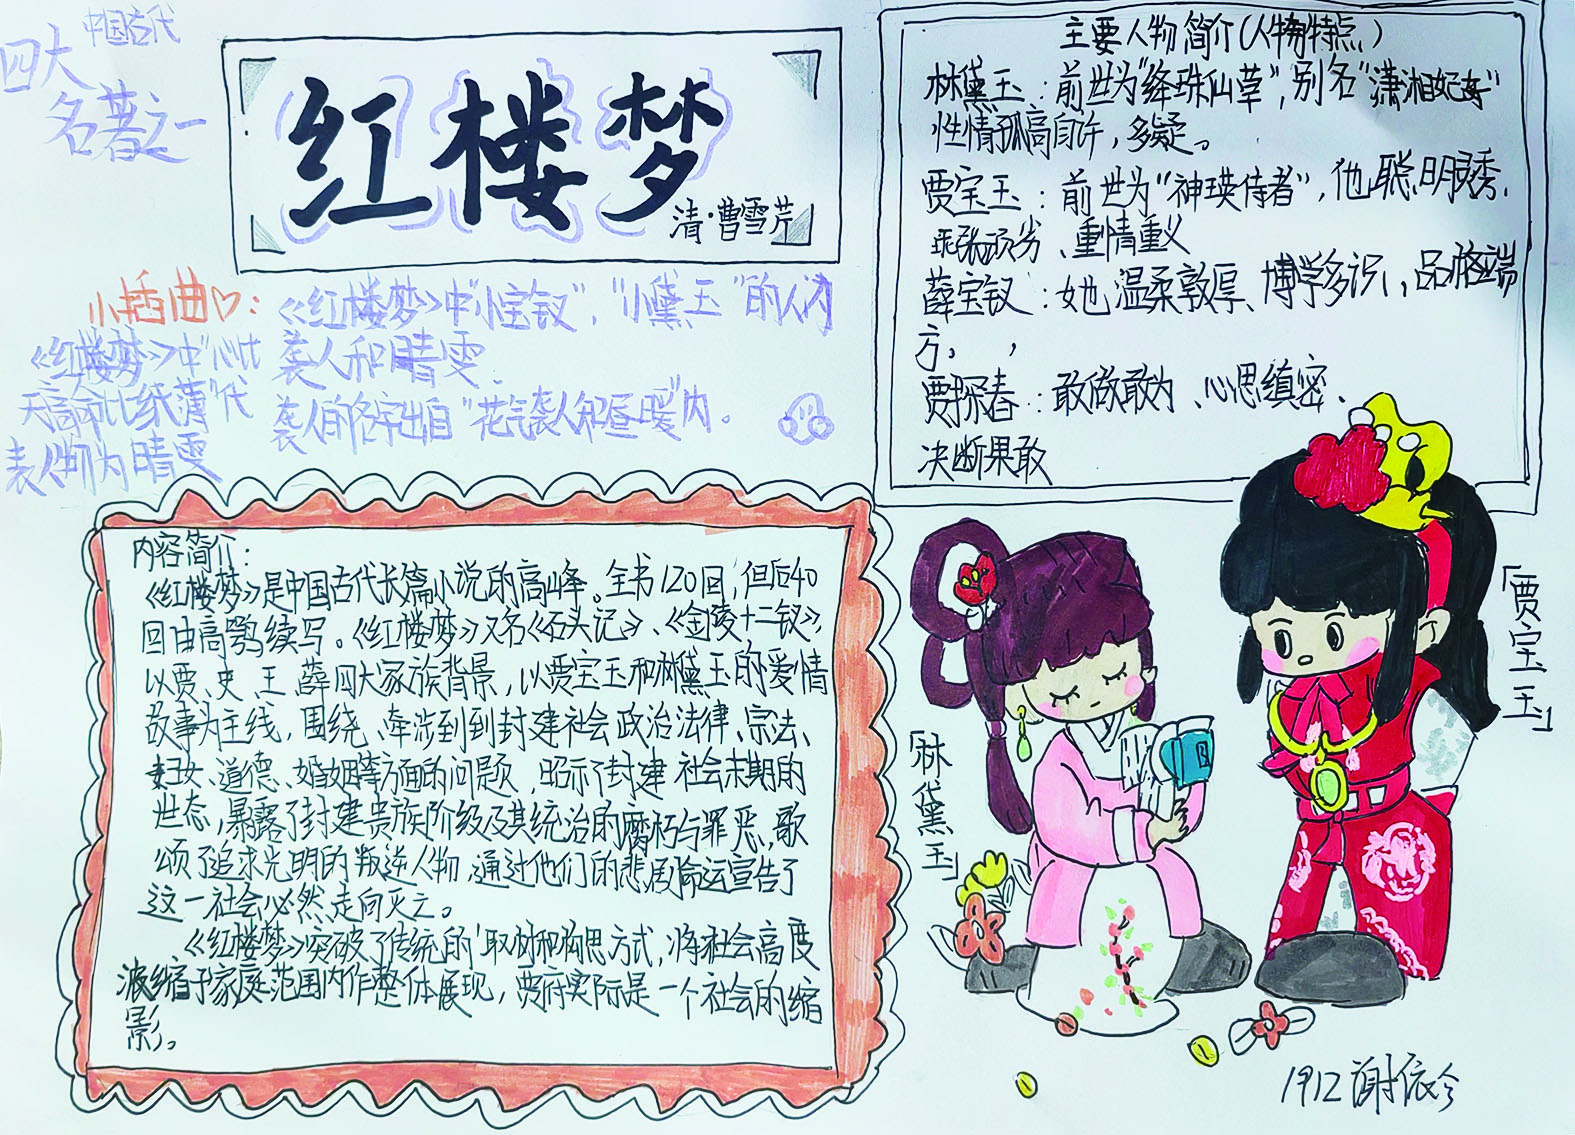 中国古代
四大
名著之一
红楼梦
清·曹雪芹
小插曲♡:
《红楼梦》中"心比
天高命比纸薄"代
表人物为晴雯
《红楼梦》中"小宝钗","小黛玉"的人为
袭人和晴雯.
袭人的名字出自"花气袭人知昼暖"内。
主要人物简介(人物特点)
林黛玉:前世为"绛珠仙草",别名"潇湘妃子"
性情孤高自许,多疑。
贾宝玉:前世为"神瑛侍者",他聪明灵秀.
乖张顽劣、重情重义
薛宝钗:她温柔敦厚、博学多识,品格端
方。,
贾探春:敢做敢为、心思缜密、
决断果敢
内容简介:
《红楼梦》是中国古代长篇小说的高峰。全书120回,但后40
回由高鹗续写。《红楼梦》又名《石头记》、《金陵十二钗》,
以贾、史、王、薛四大家族背景,以贾宝玉和林黛玉的爱情
故事为主线,围绕、牵涉到到封建社会政治法律、宗法、
妇女、道德、婚姻等方面的问题,昭示了封建社会末期的
世态,暴露了封建贵族阶级及其统治的腐朽与罪恶,歌
颂了追求光明的叛逆人物,通过他们的悲剧命运宣告了
这一社会必然走向灭亡。
《红楼梦》突破了传统的取材和构思方式,将社会高度
浓缩于家庭范围内作整体展现,贾府实际是一个社会的缩
影。
「林黛玉」
「贾宝玉」
1912谢依今